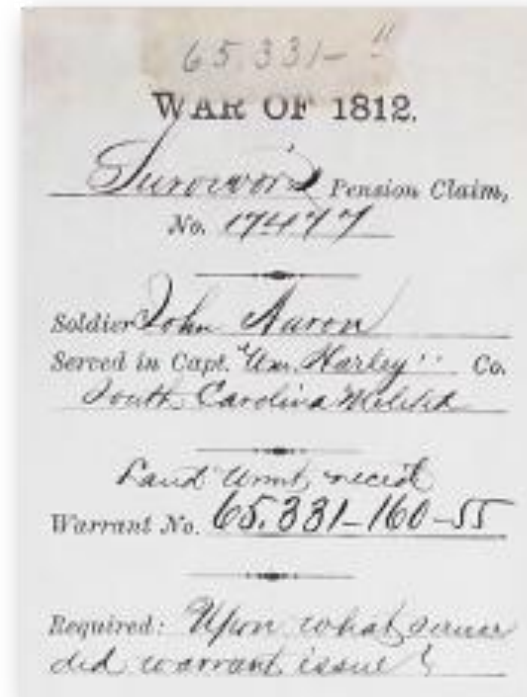 65.331-"
WAR OF 1812.
Survivor's Pension Claim,
No. 17477
Soldier John Aaron
Served in Capt. "Wm. Harley" Co.
South Carolina Militia
Land Wrnt recd
Warrant No. 65.331-160-55
Required: Upon what service
did warrant issue?